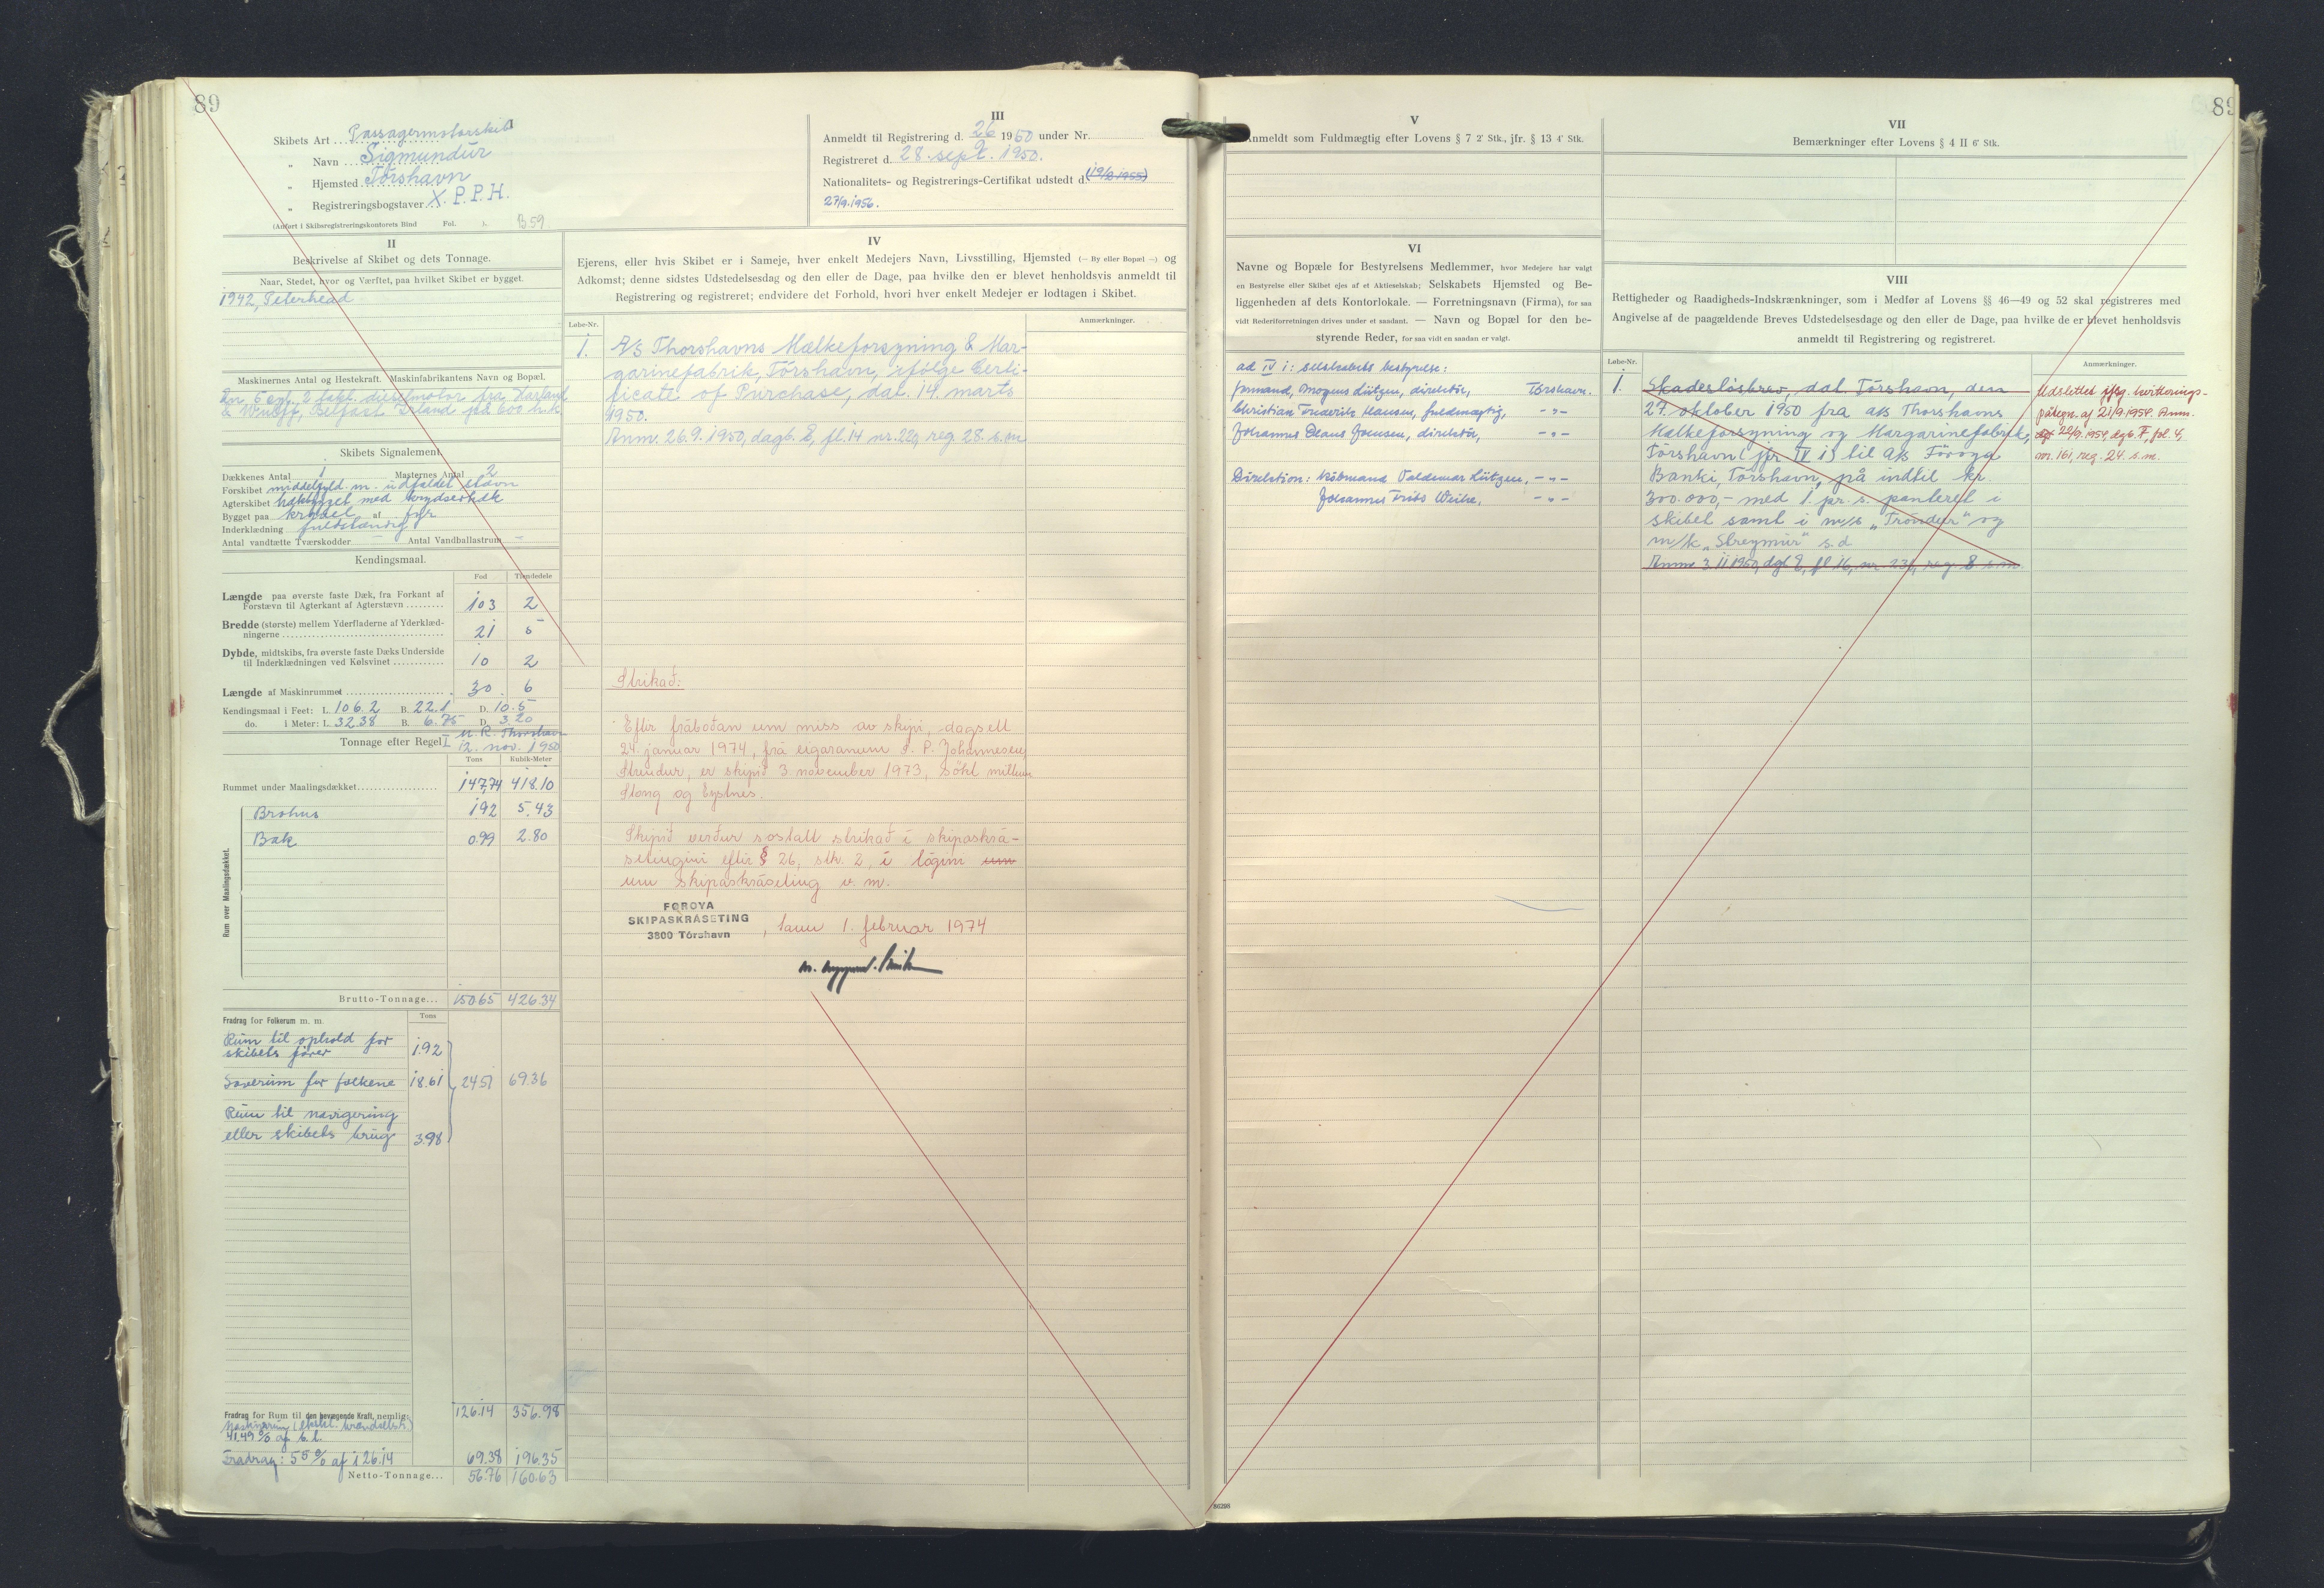 89
I
Skibets Art Passagermotorskib
„ Navn Sigmundur
„ Hjemsted Tórshavn
„ Registreringsbogstaver X.P.P.H.
(Anført i Skibsregistreringskontorets Bind Fol. ). B 59
II
Beskrivelse af Skibet og dets Tonnage.
Naar, Stedet, hvor og Værftet, paa hvilket Skibet er bygget.
1942, Peterhead
Maskinernes Antal og Hestekraft. Maskinfabrikantens Navn og Bopæl.
En 6 cyl., 2 takt. dieselmotor fra Harland
& Wolff, Belfast Irland på 600 h.k.
Skibets Signalement.
Dækkenes Antal 1 Masternes Antal 2
Forskibet middelfyld. m. udfaldet stævn
Agterskibet hækbygget med krydserhæk
Bygget paa kravel af fyr
Inderklædning fuldstændig
Antal vandtætte Tværskodder — Antal Vandballastrum —
Kendingsmaal.
Fod Tiendedele
Længde paa øverste faste Dæk, fra Forkant af
Forstævn til Agterkant af Agterstævn 103 2
Bredde (største) mellem Yderfladerne af Yderklæd-
ningerne 21 5
Dybde, midtskibs, fra øverste faste Dæks Underside
til Inderklædningen ved Kølsvinet 10 2
Længde af Maskinrummet 30. 6
Kendingsmaal i Feet: L. 106.2 B. 22.1 D. 10.5
do. i Meter: L. 32.38 B. 6.75 D. 3.20
Tonnage efter Regel I M. K. Thorshavn
12. nov. 1950
Tons Kubik-Meter
Rummet under Maalingsdækket 147.74 418.10
Rum over Maalingsdækket.
Brohus 1.92 5.43
Bak 0.99 2.80
Brutto-Tonnage... 150.65 426.34
Fradrag for Folkerum m. m. Tons
Rum til ophold for
skibets fører 1.92
Soverum for folkene 18.61 24.51 69.36
Rum til navigering
eller skibets brug 3.98
126.14 356.98
Fradrag for Rum til den bevægende Kraft, nemlig:
Maskinrum (ekskl. brændselsr.)
41.49 % af b. t.
Fradrag: 55 % af 126.14 69.38 196.35
Netto-Tonnage... 56.76 160.63
III
Anmeldt til Registrering d. 26/9 1950 under Nr.
Registreret d. 28. sept. 1950.
Nationalitets- og Registrerings-Certifikat udstedt d. (19/2 1955)
27/9.1956.
IV
Ejerens, eller hvis Skibet er i Sameje, hver enkelt Medejers Navn, Livsstilling, Hjemsted (— By eller Bopæl —) og
Adkomst; denne sidstes Udstedelsesdag og den eller de Dage, paa hvilke den er blevet henholdsvis anmeldt til
Registrering og registreret; endvidere det Forhold, hvori hver enkelt Medejer er lodtagen i Skibet.
Løbe-Nr. Anmærkninger.
1. A/S Thorshavns Mælkeforsyning & Mar-
garinefabrik, Tórshavn, ifølge Certi-
ficate of Purchase, dat. 14. marts
1950.
Anm. 26.9.1950, dagb. E, fl. 14 nr. 220, reg. 28. s.m.
Strikað:
Eftir fráboðan um miss av skipi, dagsett
24. januar 1974, frá eigaranum J. P. Johannesen,
Strendur, er skipið 3. november 1973, sökt millum
Stong og Eystnes.
Skipið verður sostatt strikað í skipaskrá-
setingini eftir § 26, stk. 2, í lógini um
um skipaskráseting v. m.
FØROYA
SKIPASKRÁSETING
3800 Tórshavn , tann 1. februar 1974
89
V
Anmeldt som Fuldmægtig efter Lovens § 7 2' Stk., jfr. § 13 4' Stk.
VI
Navne og Bopæle for Bestyrelsens Medlemmer, hvor Medejere har valgt
en Bestyrelse eller Skibet ejes af et Aktieselskab; Selskabets Hjemsted og Be-
liggenheden af dets Kontorlokale. — Forretningsnavn (Firma), for saa
vidt Rederiforretningen drives under et saadant. — Navn og Bopæl for den be-
styrende Reder, for saa vidt en saadan er valgt.
ad IV 1: selskabets bestyrelse:
formand, Mogens Lützen, direktör, Tórshavn.
Christian Frederik Hansen, fuldmægtig, -"-
Johannes Claus Joensen, direktör, -"-
Direktion: Købmand Valdemar Lützen, -"-
Johannes Friis Weihe, -"-
VII
Bemærkninger efter Lovens § 4 II 6' Stk.
VIII
Rettigheder og Raadigheds-Indskrænkninger, som i Medfør af Lovens §§ 46—49 og 52 skal registreres med
Angivelse af de paagældende Breves Udstedelsesdage og den eller de Dage, paa hvilke de er blevet henholdsvis
anmeldt til Registrering og registreret.
Løbe-Nr. Anmærkninger.
1. Skadesløsbrev, dat. Tórshavn, den
27. oktober 1950 fra a/s Thorshavns
Mælkeforsyning og Margarinefabrik,
Tórshavn (jfr. IV 1) til a/s Föroya
Banki, Tórshavn, på indtil kr.
300.000,- med 1. pr. s. panteret i
skibet samt i m/s „Tróndur" og
m/k „Streymur" s. d.
Anm. 3.11.1950, dgb. E, fl. 16, nr. 236, reg. 8. s.m.
Udslettet iflg. kvitterings-
påtegn. af 21/9.1954. Anm.
22/9.1954, dgb. F, fol. 4,
nr. 161, reg. 24. s.m.
86298